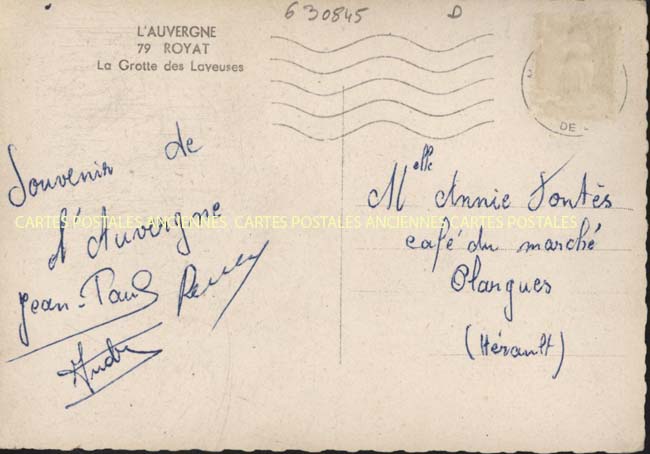 630845 D
L'AUVERGNE
79 ROYAT
La Grotte des Laveuses
DE
Souvenir de
d'Auvergne
Jean-Paul
André
Melle Annie Fontès
CARTES POSTALES ANCIENNES CARTES POSTALES ANCIENNES CARTES POSTALES
café du marché
Olargues
(Hérault)